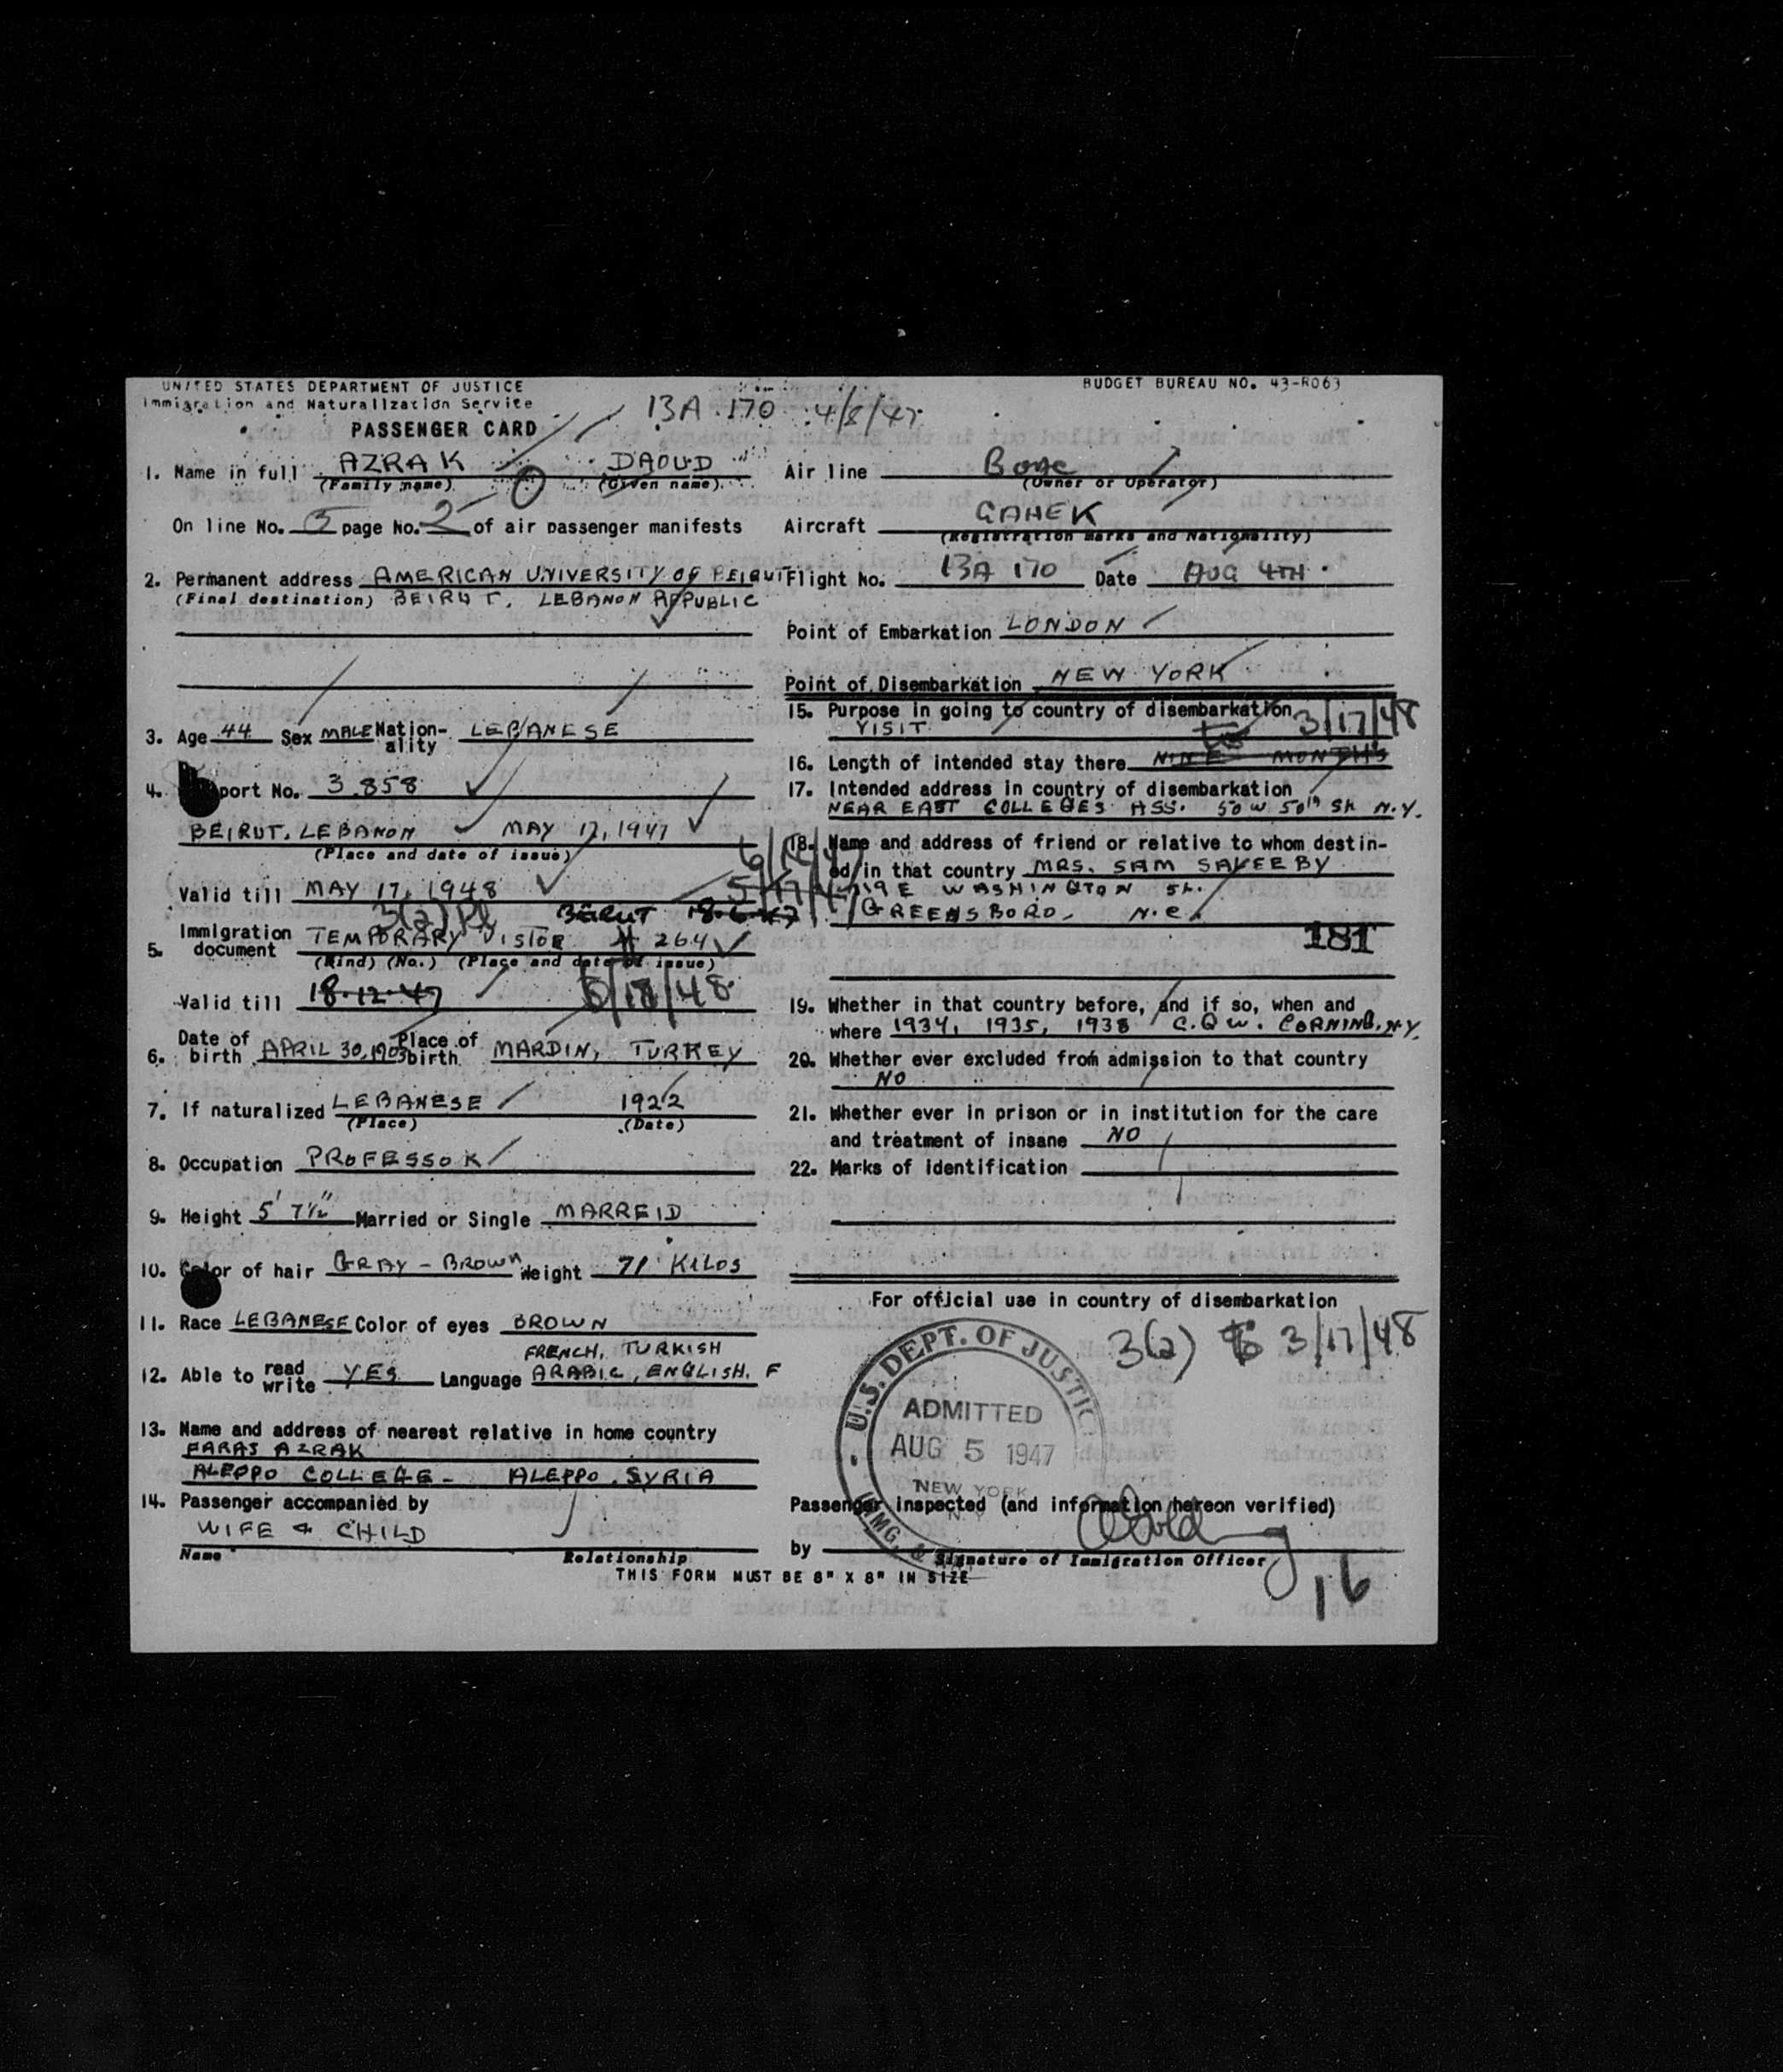 UNITED STATES DEPARTMENT OF JUSTICE
Immigration and Naturalization Service
BUDGET BUREAU NO. 43-R063
13A 170 4/8/47
PASSENGER CARD
1. Name in full AZRAK DAOUD
(Family name) (Given name)
On line No. 5 page No. 2 of air passenger manifests
2. Permanent address AMERICAN UNIVERSITY OF BEIRUT
(Final destination) BEIRUT, LEBANON REPUBLIC
3. Age 44 Sex MALE Nationality LEBANESE
4. port No. 3858
BEIRUT, LEBANON MAY 17, 1947
(Place and date of issue)
Valid till MAY 17, 1948
3(2)
BEIRUT 18-6-47
5. Immigration document TEMPORARY VISTOR # 264
(Kind) (No.) (Place and date of issue)
Valid till 18-12-47 5/18/48
6. Date of birth APRIL 30, 1903 Place of birth MARDIN, TURKEY
7. If naturalized LEBANESE 1922
(Place) (Date)
8. Occupation PROFESSOR
9. Height 5' 7½" Married or Single MARREID
10. Color of hair GRAY - BROWN Weight 71 KILOS
11. Race LEBANESE Color of eyes BROWN
FRENCH, TURKISH
12. Able to read write YES Language ARABIC, ENGLISH. F
13. Name and address of nearest relative in home country
FARAS AZRAK
ALEPPO COLLEGE - ALEPPO, SYRIA
14. Passenger accompanied by
WIFE & CHILD
Name Relationship
THIS FORM MUST BE 8" X 8" IN SIZE
Air line BOAC
(Owner or Operator)
Aircraft GAHEK
(Registration marks and Nationality)
Flight No. 13A 170 Date AUG 4TH
Point of Embarkation LONDON
Point of Disembarkation NEW YORK
15. Purpose in going to country of disembarkation
VISIT to 3/17/48
16. Length of intended stay there NINE MONTHS
17. Intended address in country of disembarkation
NEAR EAST COLLEGES ASS. 50 W 50th St. N.Y.
18. Name and address of friend or relative to whom destined in that country MRS. SAM SAKEEBY
19 E WASHINGTON St.
GREENSBORO, N.C.
181
19. Whether in that country before, and if so, when and
where 1934, 1935, 1938 C.G.W. CORNING, N.Y.
20. Whether ever excluded from admission to that country
NO
21. Whether ever in prison or in institution for the care
and treatment of insane NO
22. Marks of identification
For official use in country of disembarkation
3(2) to 3/17/48
U.S. DEPT. OF JUSTICE
ADMITTED
AUG 5 1947
NEW YORK
N.Y.
Passenger inspected (and information hereon verified)
by
Signature of Immigration Officer
16